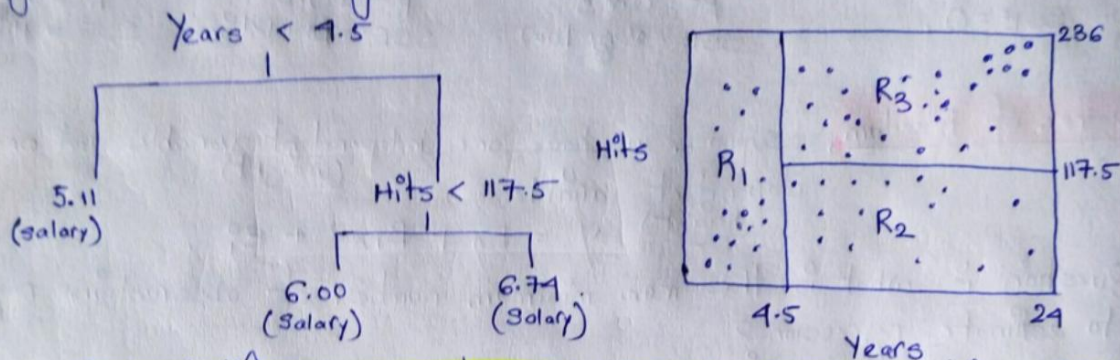 Years < 4.5
5.11
(salary)
Hits < 117.5
6.00
(salary)
6.74
(salary)
236
Hits
R3
R1
117.5
R2
4.5
24
Years